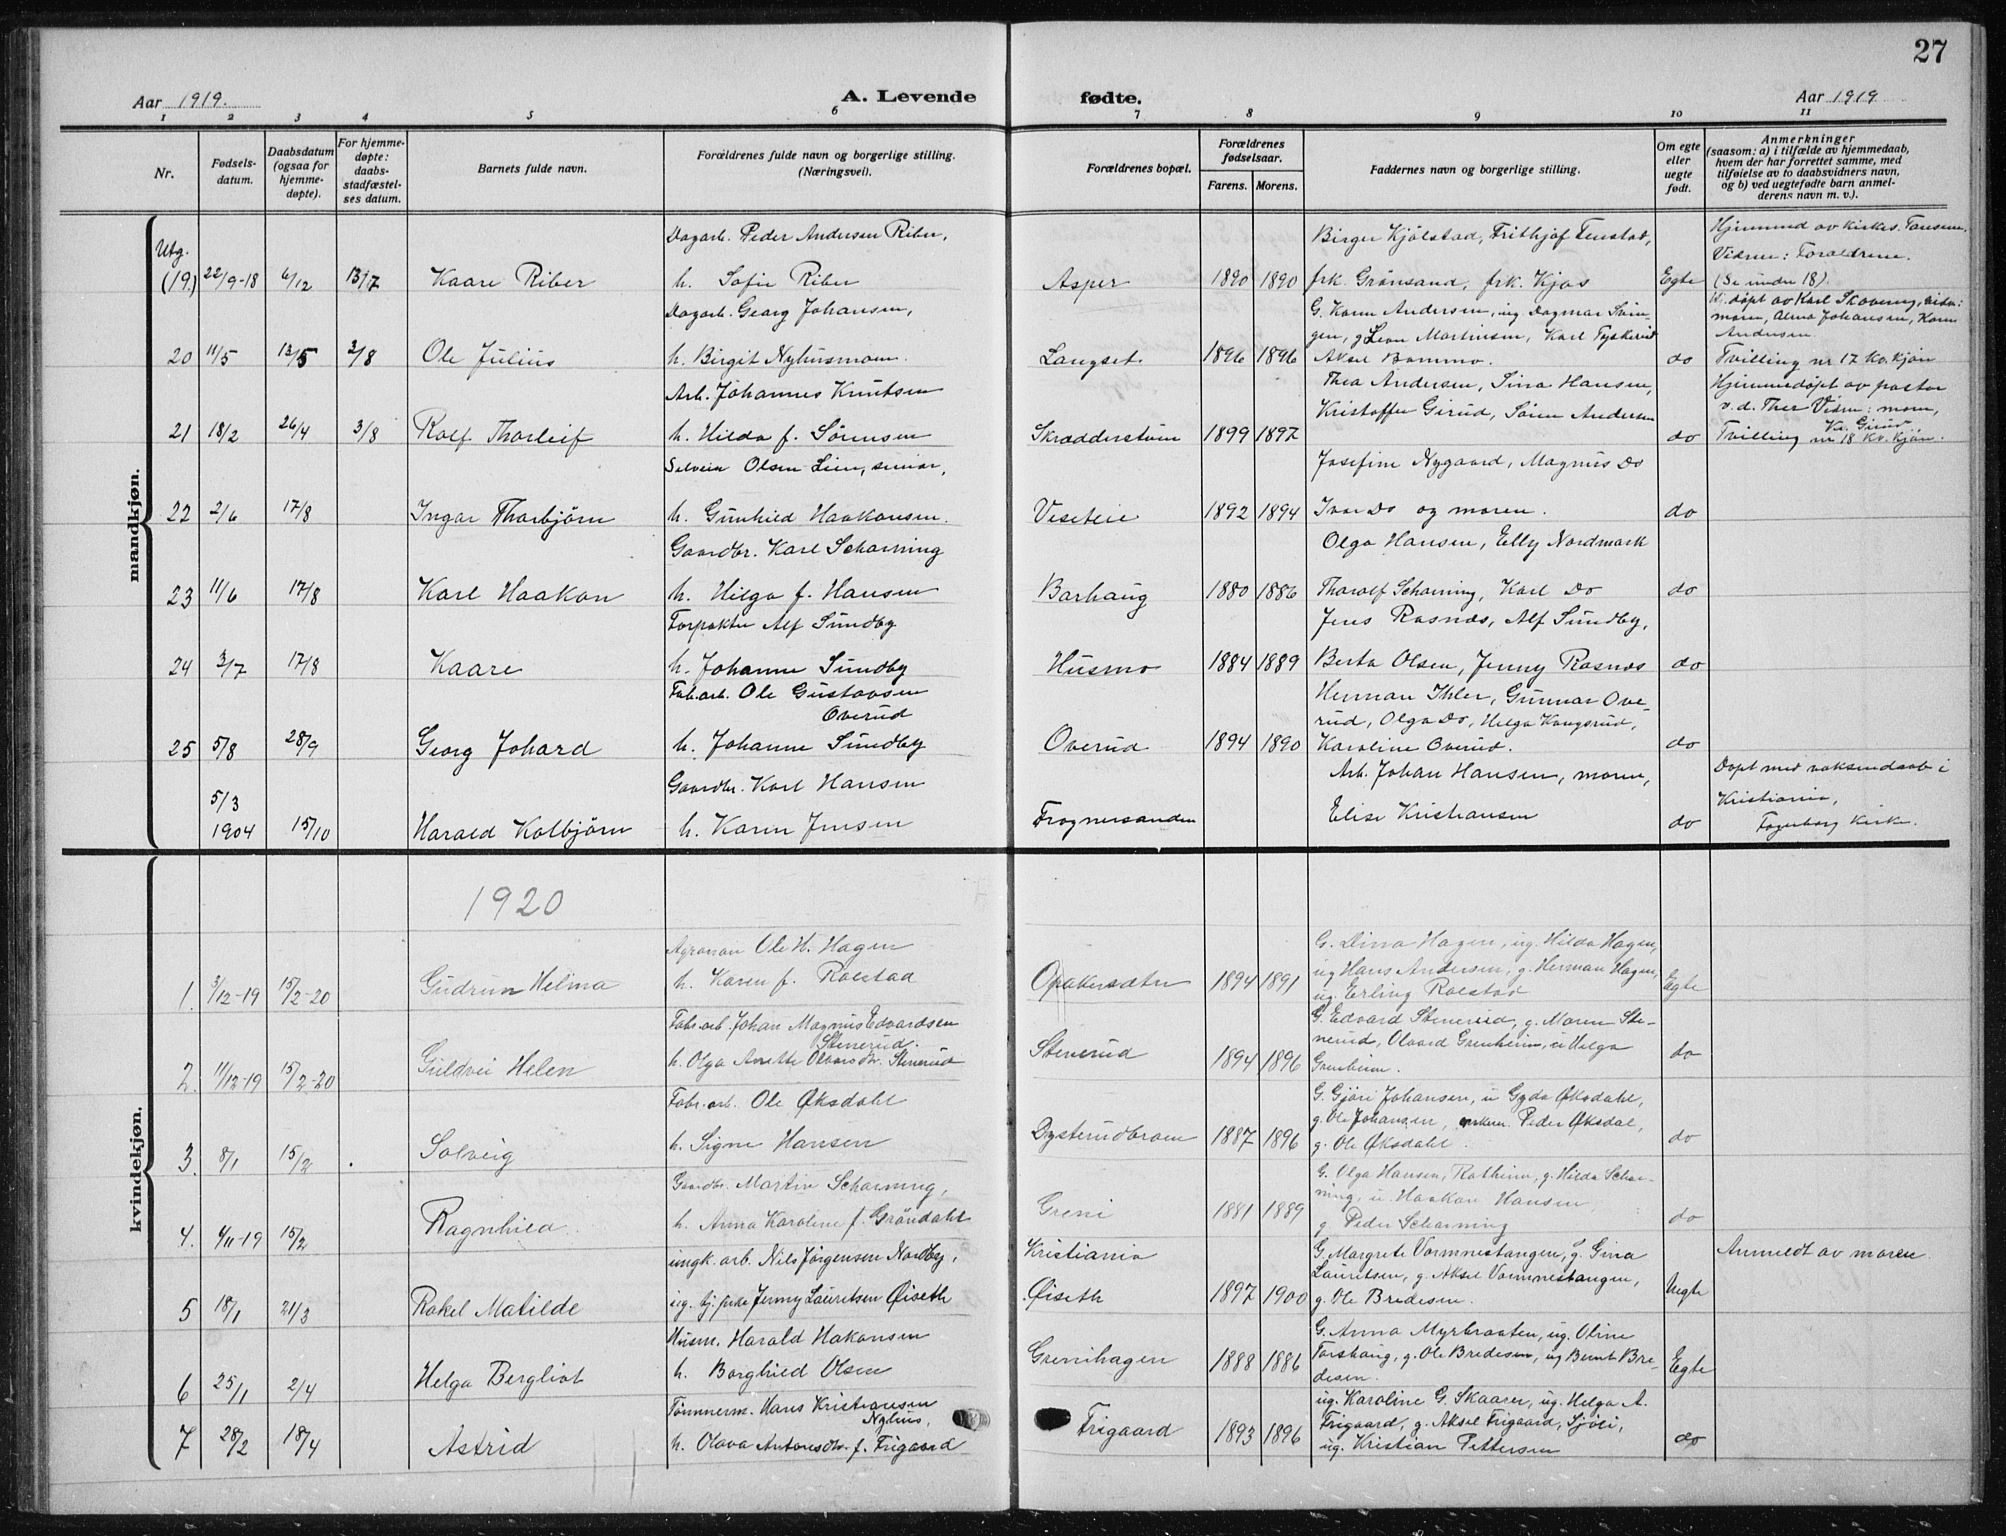 27
Aar 1919.
A. Levende
fødte.
Aar 1919
1 2 3 4 5 6 7 8 9 10 11
Nr.
Fødsels-
datum.
Daabsdatum
(ogsaa for
hjemme-
døpte).
For hjemme-
døpte:
daabs-
stadfæstel-
ses datum.
Barnets fulde navn.
Forældrenes fulde navn og borgerlige stilling.
(Næringsvei).
Forældrenes bopæl.
Forældrenes
fødselsaar.
Farens. Morens.
Faddernes navn og borgerlige stilling.
Om egte
eller
uegte
født.
Anmerkninger
(saasom: a) i tilfælde av hjemmedaab,
hvem der har forrettet samme, med
tilføielse av to daabsvidners navn,
og b) ved uegtefødte barn anmel-
derens navn m. v.).
mandkjøn.
Utg.
(19.) 22/9-18 6/12 13/7 Kaare Riber
Dagarb. Peder Andersen Riber,
h. Sofie Riber
Asper 1890 1890
Birger Kjølstad, Frithjof Tenstad,
frk. Grønsand, frk. Kjos
Egte
Hjemmed av kirkes.
Vidne: Foreldrene.
(Se under 18).
20 11/5 13/5 3/8 Ole Julius
Dagarb. Georg Johansen,
h. Birgit Nyhusmoen.
Langset 1896 1896
G. Karen Andersen, ug. Dagmar Svin-
gen, g Leon Martinsen, Karl
Aksel Bommo.
do
døpt av Karl
moren, Alma Johansen, Karen
Andersen
Tvilling nr 17 Kv. kjøn
21 18/2 26/4 3/8 Rolf Thorleif
Arb. Johannes Knutsen
h. Hilda f. Sørensen
Skrædderstuen 1899 1897
Thea Andersen, Sina Hansen,
Kristoffer Girud, Søren Andersen
do
Hjemmedøpt av pastor
v. d. Ther Vidne: moren,
Kr. Girud
Tvilling nr 18 Kv. kjøn.
22 2/6 17/8 Ingar Thorbjørn
Selveier Olsen Lien, senior,
h. Gunhild Haakonsen.
Veseteie 1892 1894
Josefine Nygaard, Magnus Do
Ivar Do og moren.
do
23 11/6 17/8 Karl Haakon
Gaardbr. Karl Scharning
h. Helga f. Hansen
Barhaug 1880 1886
Olga Hansen, Elly Nordmark
Thoralf Scharning, Karl Do
do
24 3/7 17/8 Kaare
Forpakter Alf Sundby
h. Johanne Sundby
Husmo 1884 1889
Jens Rasnæs, Alf Sundby,
Berta Olsen, Jenny Rasnæs
do
25 5/8 28/9 Georg Johard
Fab.arb. Ole Gustavsen
Overud
h. Johanne Sundby
Overud 1894 1890
Herman Ihler, Gunnar Ove-
rud, Olga Do, Helga Kongsrud,
Karoline Overud.
do
5/3
1904 15/10 Harald Kolbjørn
Gaardbr. Karl Hansen
h. Karen Jensen
Frognersanden
Arb. Johan Hansen, moren,
Elise Kristiansen
do
Døpt med voksendaab i
Kristiania,
Fagerborg Kirke.
kvindekjøn.
1920
1. 3/12-19 15/2-20 Gudrun Helma
Agronom Ole H. Hagen
h. Karen f. Rolstad
Opakersæter 1894 1891
G. Dina Hagen, ug. Hilda Hagen,
ug Hans Andersen, g. Herman Hagen,
ug. Erling Rolstad
Egte
2. 11/12-19 15/2-20 Guldvei Helen
Fabr.arb. Johan Magnus Edvardsen
Stenerud.
h. Olga Anette Olsdr. Stenerud
Stenerud 1894 1896
G. Edvard Stenerud, g. Maren Ste-
nerud, Olvard Grenheim, u Helga
Grenheim.
do
3. 8/1 15/2 Solveig
Fabr.arb. Ole Øksdahl
h. Signe Hansen
Dysterudbraaten 1887 1896
G. Gjøri Johansen, u Gyda Øksdahl,
g. Ole Johansen, Peder Øksdal,
g. Ole Øksdahl.
do
4. 4/11-19 15/2 Ragnhild
Gaardbr. Martin Scharning,
h. Anna Karoline f. Grøndahl
Greni 1881 1889
G. Olga Hansen, Ratheim, g. Hilda Schar-
ning, u. Haakon Hansen
g. Peder Scharning
do
5 18/1 21/3 Rakel Matilde
ungk. arb. Nils Jørgensen Nordby,
ug. tj. pike Jenny Lauritsen Øiseth
Kristiania
Øiseth 1897 1900
G. Margrete Vormnestangen, g. Gina
Lauritsen, g. Aksel Vormnestangen,
g. Ole Bredesen.
Uegte
Anmeldt av moren.
6 25/1 2/4 Helga Bergliot
Husm. Harald Hakonsen
h. Borghild Olsen
Grenihagen 1888 1886
G. Anna Myrbraaten, ug. Oline
Torshaug, g. Ole Bredesen, ug Bernt Bre-
desen.
Egte
7 28/2 18/4 Astrid
Tømmerm. Hans Kristiansen
Nylius,
h. Olava Antonsdtr. f. Frigaard
Frigaard 1893 1896
ug. Karoline G. Skaarer, ug. Helga A.
Frigaard, g. Aksel Frigaard, Sjøli,
ug. Kristian Pettersen
do